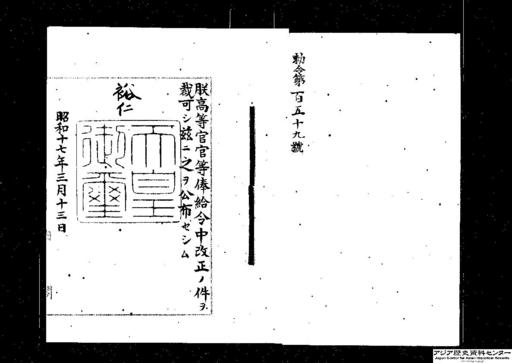 勅令第百五十九號
朕高等官官等俸給令中改正ノ件ヲ
裁可シ茲ニ之ヲ公布セシム
裕仁
天皇
御璽
昭和十七年三月十三日
アジア歴史資料センター
Japan Center for Asian Historical Records